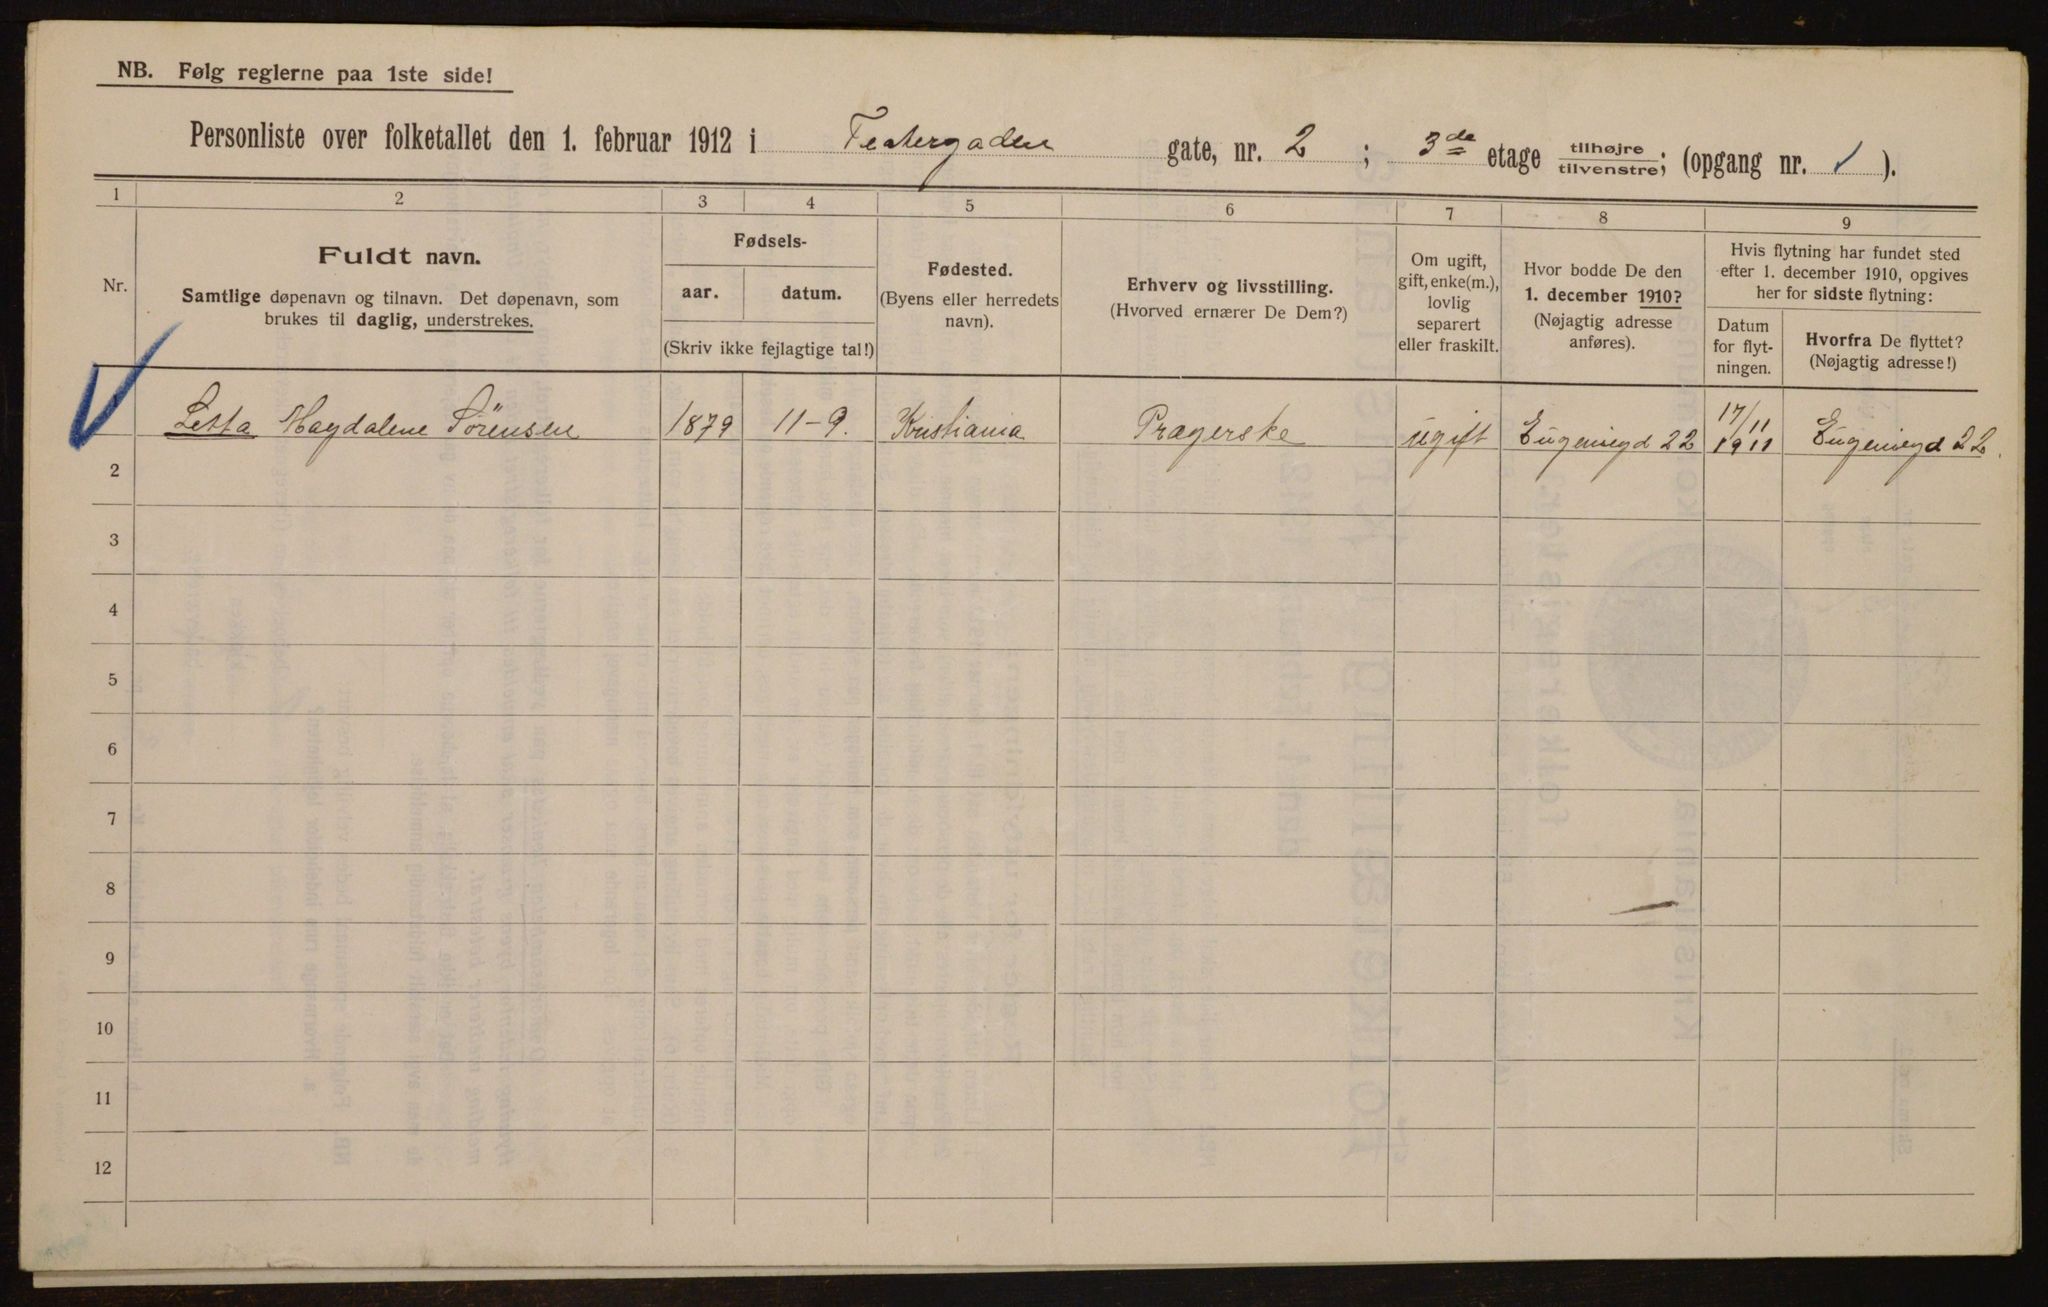 NB. Følg reglerne paa 1ste side!
Personliste over folketallet den 1. februar 1912 i Teatergaden gate, nr. 2 ; 3de etage tilhøjre/tilvenstre; (opgang nr. ✓).
1 2 3 4 5 6 7 8 9
Nr.
Fuldt navn.
Samtlige døpenavn og tilnavn. Det døpenavn, som
brukes til daglig, understrekes.
Fødsels-
aar. datum.
(Skriv ikke fejlagtige tal!)
Fødested.
(Byens eller herredets
navn).
Erhverv og livsstilling.
(Hvorved ernærer De Dem?)
Om ugift,
gift, enke(m.),
lovlig
separert
eller fraskilt.
Hvor bodde De den
1. december 1910?
(Nøjagtig adresse
anføres).
Hvis flytning har fundet sted
efter 1. december 1910, opgives
her for sidste flytning:
Datum
for flyt-
ningen.
Hvorfra De flyttet?
(Nøjagtig adresse!)
Magdalene Sörensen 1879 11-9. Kristiania Pragerske ugift Eugeniegd 22 17/11 1911 Eugeniegd 22.
2
3
4
5
6
7
8
9
10
11
12